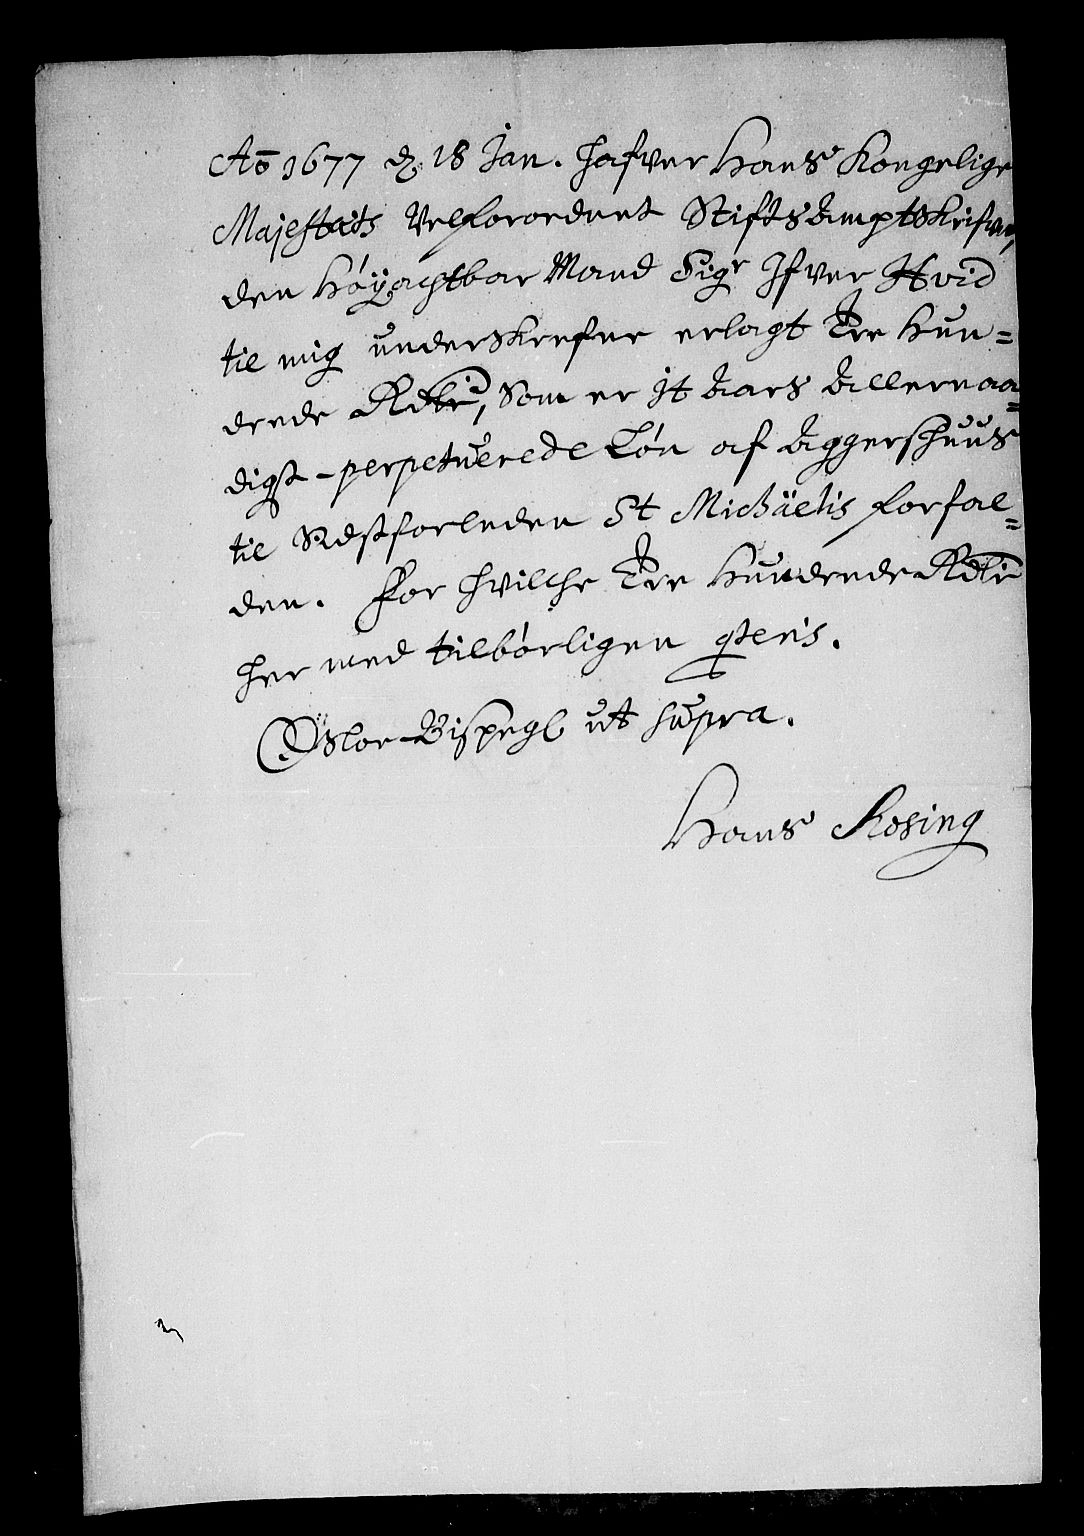 Aō 1677 d. 18 Jan. hafver Hans Kongelige
Majestaits Velforordnet StiftsAmptskrifver,
den Höÿachtbar Mand Sigr Ifver Hvid
til mig underskrefne erlagt Tre Hun=
drede Rdlr, Som er it Aars Allernaa=
digst perpetuerede Løn af Aggershuus
til Næstforleden St Michäelis forfal=
den. For hvilche Tre Hundrede Rdlr
her med tilbörligen qvteris.
Osloe Bispegl ut supra.
Hans Rosing